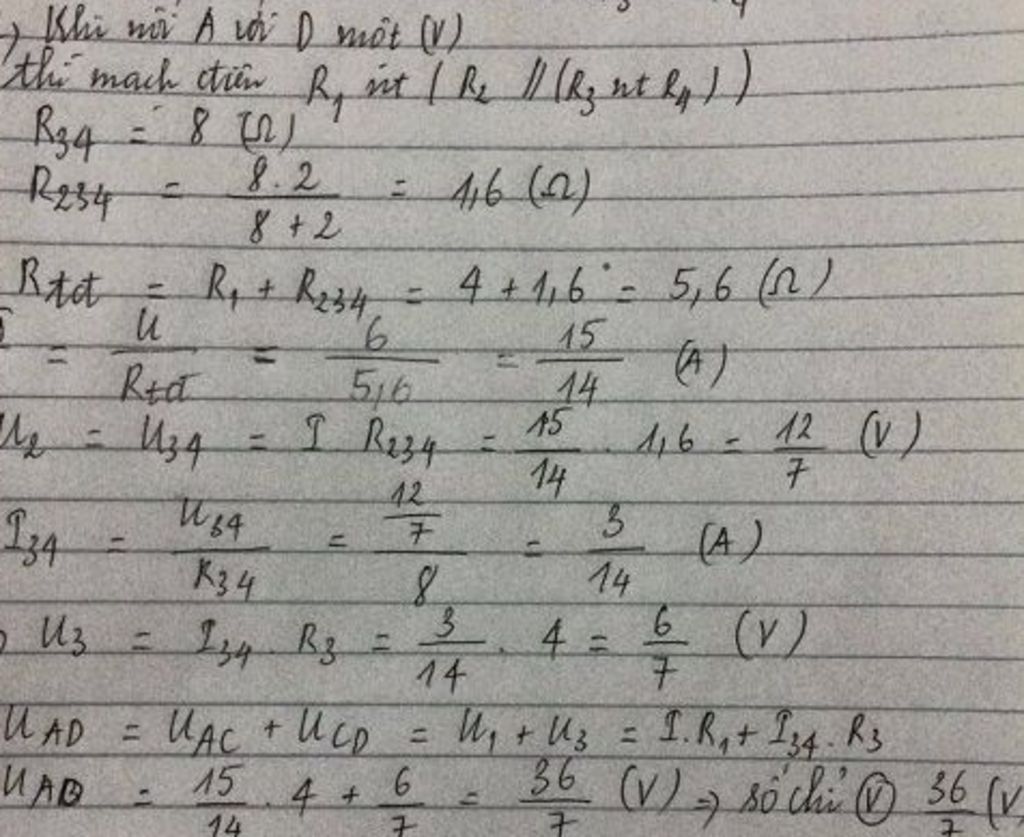 Khi nối A với D một (V)
thì mạch điện R1 nt (R2 // (R3 nt R4))
R34 = 8 (Ω)
R234 = 8.2 / 8+2 = 1,6 (Ω)
Rtđ = R1 + R234 = 4 + 1,6 = 5,6 (Ω)
= U / Rtđ = 6 / 5,6 = 15 / 14 (A)
U2 = U34 = I R234 = 15 / 14 . 1,6 = 12 / 7 (V)
I34 = U34 / R34 = 12/7 / 8 = 3 / 14 (A)
U3 = I34 . R3 = 3 / 14 . 4 = 6 / 7 (V)
UAD = UAC + UCD = U1 + U3 = I.R1 + I34.R3
UAD = 15 / 14 . 4 + 6 / 7 = 36 / 7 (V) ⇒ số chỉ (V) 36 / 7 (V